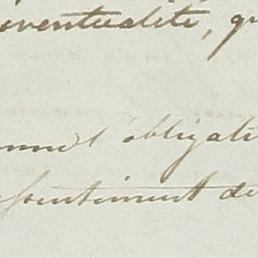 éventualité, qu
obligat
ssentiment de